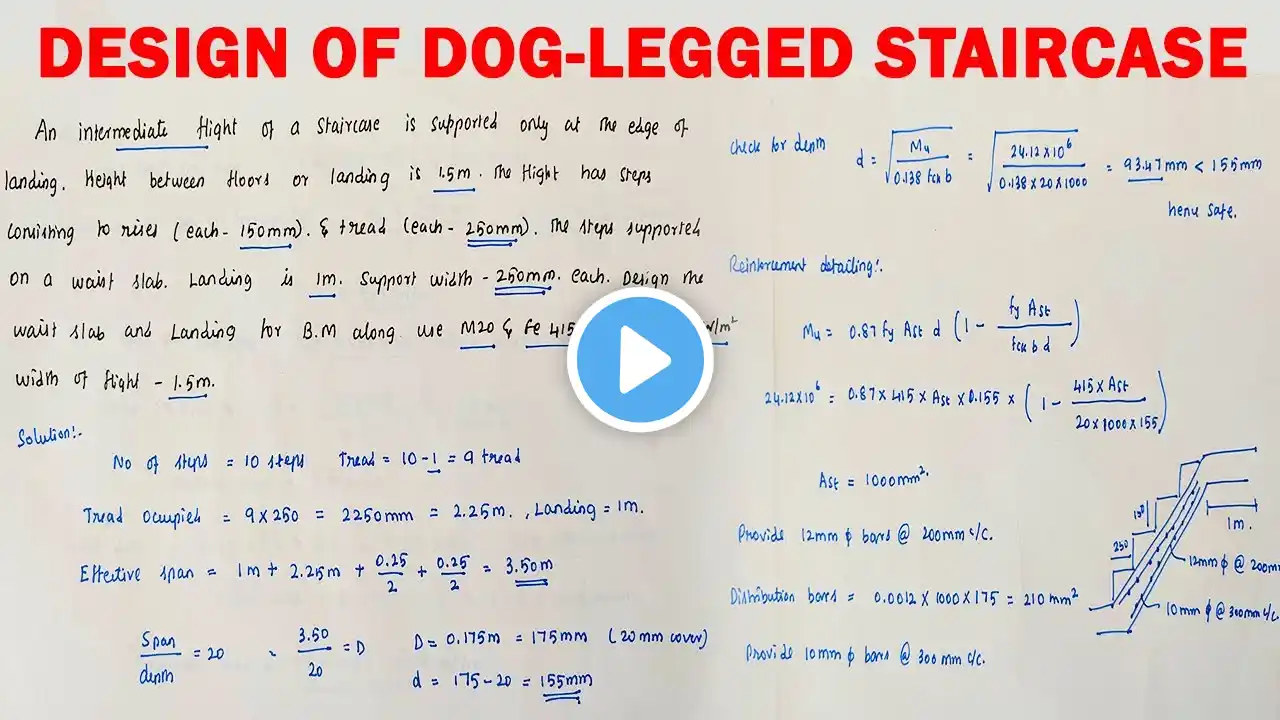 DESIGN OF DOG-LEGGED STAIRCASE
An intermediate flight of a staircase is supported only at the edge of
landing. Height between floors or landing is 1.5m. The flight has steps
consisting to rises (each- 150mm). & tread (each- 250mm). The steps supported
on a waist slab. Landing is 1m. Support width - 250mm. each. Design the
waist slab and Landing for B.M along. use M20 & fe 415 /m²
width of flight - 1.5m.
Solution:-
No of steps = 10 steps Tread = 10-1 = 9 tread
Tread occupied = 9 x 250 = 2250mm = 2.25m., Landing = 1m.
Effective span = 1m + 2.25m + 0.25/2 + 0.25/2 = 3.50m
Span/depth = 20 , 3.50/20 = D D = 0.175m = 175mm (20mm cover)
d = 175-20 = 155mm
check for depth d = √(Mu / 0.138 fck b) = √(24.12x10⁶ / 0.138x20x1000) = 93.47mm < 155mm
hence safe.
Reinforcement detailing:.
Mu = 0.87 fy Ast d (1 - fy Ast / fck b d)
24.12x10⁶ = 0.87x415x Ast x0.155 x (1 - 415x Ast / 20x1000x155)
Ast = 1000mm².
Provide 12mm ϕ bars @ 200mm c/c.
Distribution bars = 0.0012 x 1000 x 175 = 210 mm²
Provide 10mm ϕ bars @ 300 mm c/c.
150
1m.
250
12mm ϕ @ 200m
10mm ϕ @ 300mm c/c.